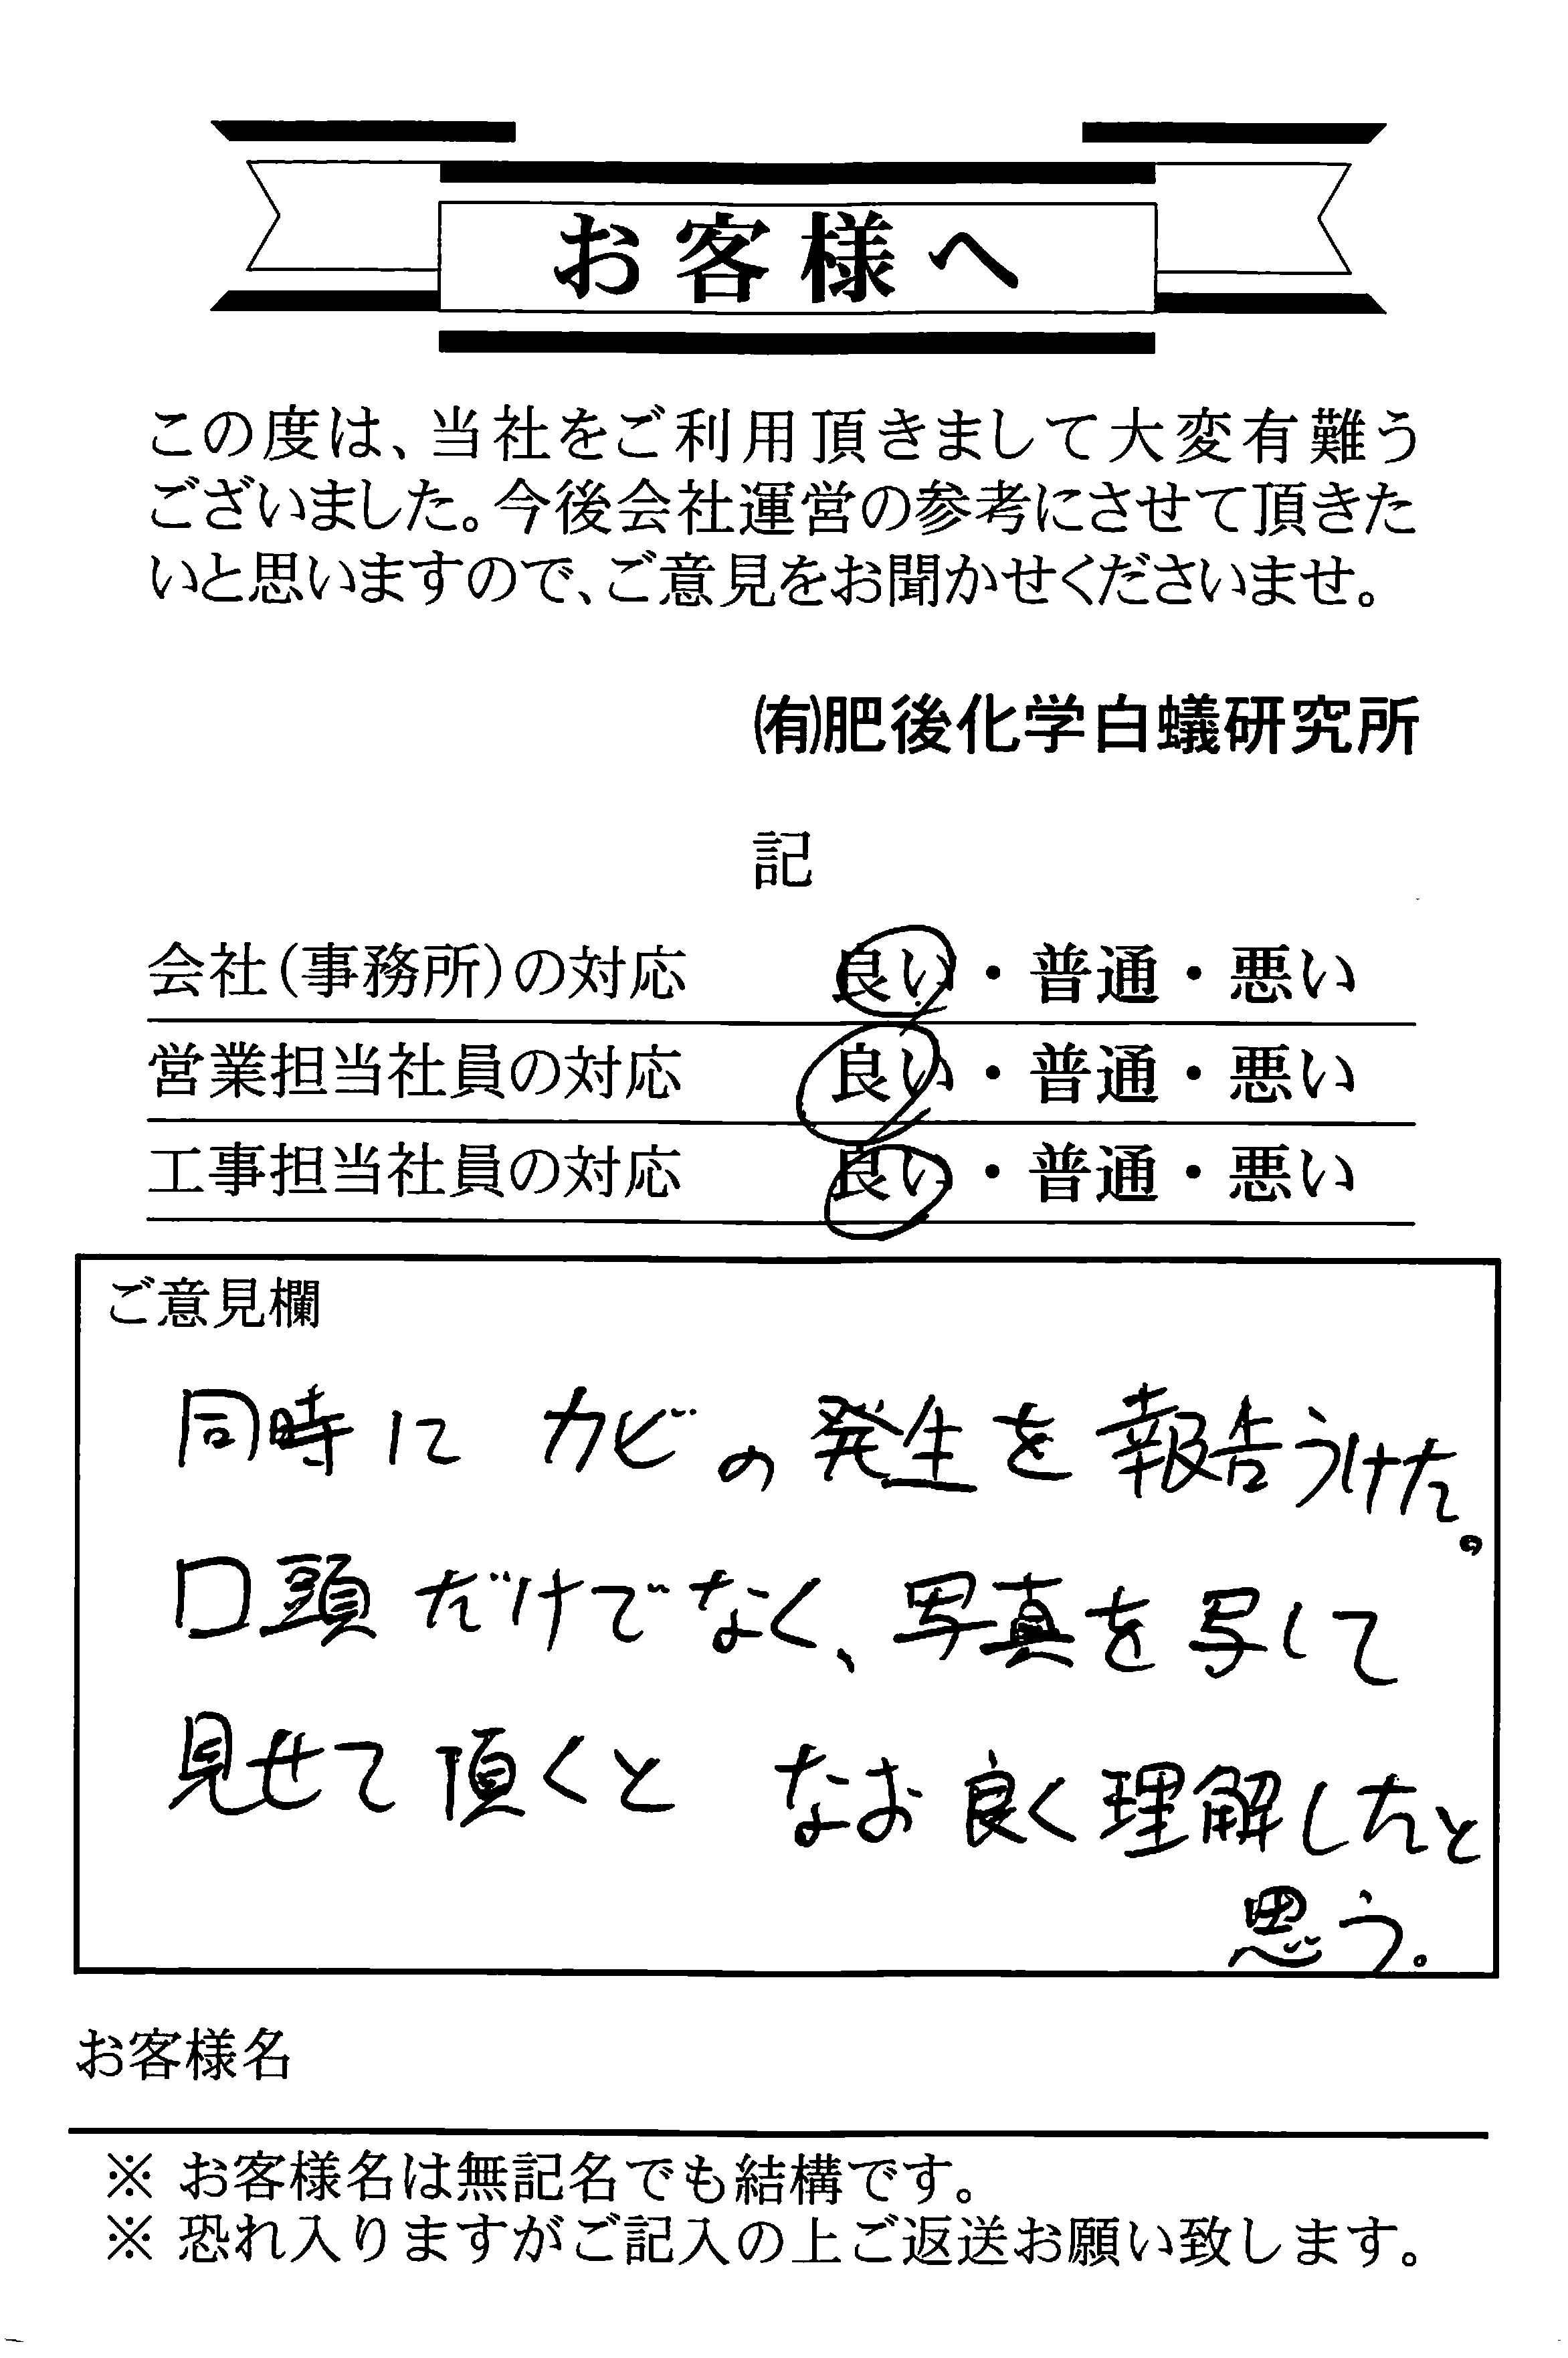 お客様へ
この度は、当社をご利用頂きまして大変有難う
ございました。今後会社運営の参考にさせて頂きた
いと思いますので、ご意見をお聞かせくださいませ。
㈲肥後化学白蟻研究所
記
会社(事務所)の対応 良い・普通・悪い
営業担当社員の対応 良い・普通・悪い
工事担当社員の対応 良い・普通・悪い
ご意見欄
同時に カビの発生を報告うけた。
口頭だけでなく、写真を写して
見せて頂くと なお良く理解したと
思う。
お客様名
※ お客様名は無記名でも結構です。
※ 恐れ入りますがご記入の上ご返送お願い致します。